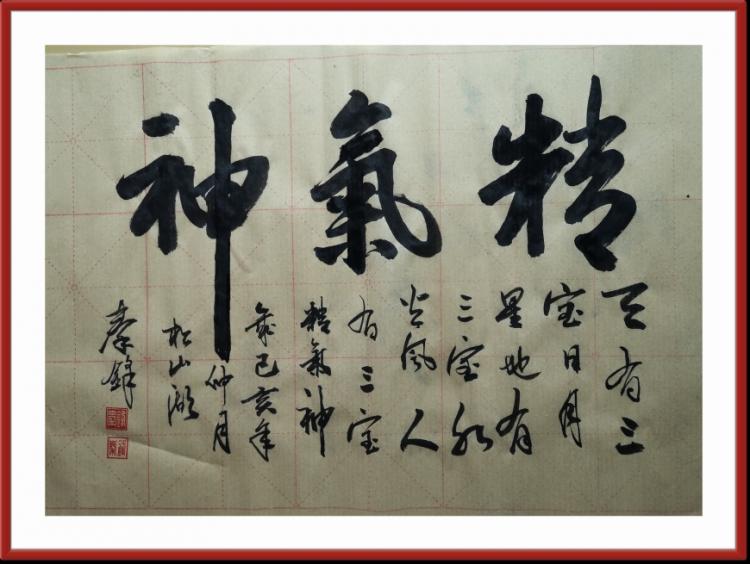 精氣神
天有三
宝日月
星地有
三宝水
火风人
有三宝
精氣神
歲己亥年
仲月
松山湖
秦鋒